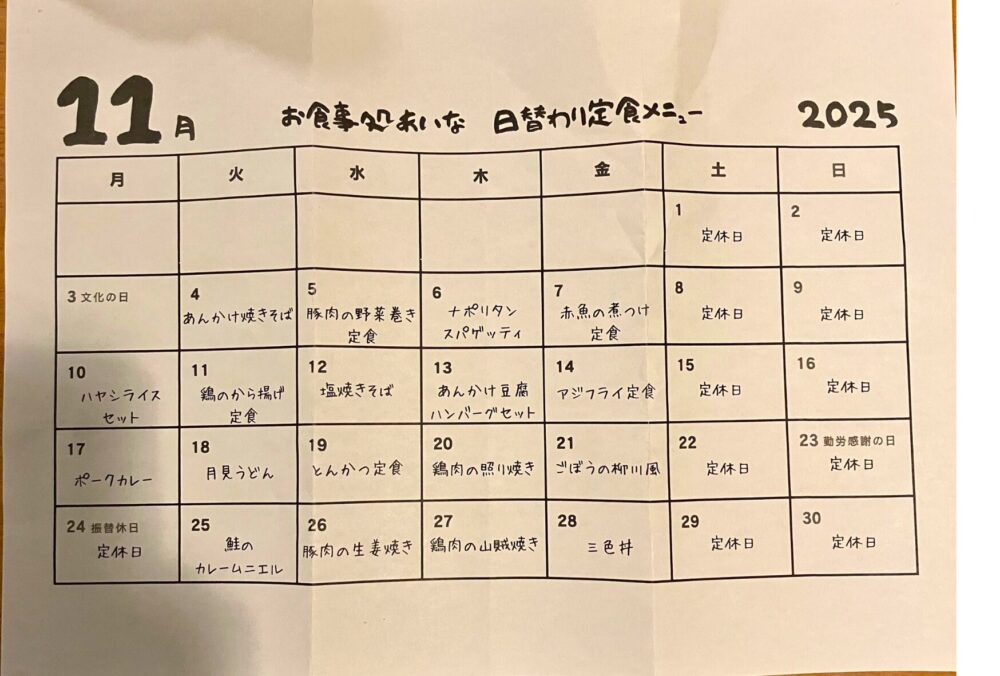 11月 お食事処あいな 日替わり定食メニュー 2025
月 火 水 木 金 土 日
1 定休日
2 定休日
3 文化の日
4 あんかけ焼きそば
5 豚肉の野菜巻き
定食
6 ナポリタン
スパゲッティ
7 赤魚の煮つけ
定食
8 定休日
9 定休日
10 ハヤシライス
セット
11 鶏のから揚げ
定食
12 塩焼きそば
13 あんかけ豆腐
ハンバーグセット
14 アジフライ定食
15 定休日
16 定休日
17 ポークカレー
18 月見うどん
19 とんかつ定食
20 鶏肉の照り焼き
21 ごぼうの柳川風
22 定休日
23 勤労感謝の日
定休日
24 振替休日
定休日
25 鮭の
カレームニエル
26 豚肉の生姜焼き
27 鶏肉の山賊焼き
28 三色丼
29 定休日
30 定休日